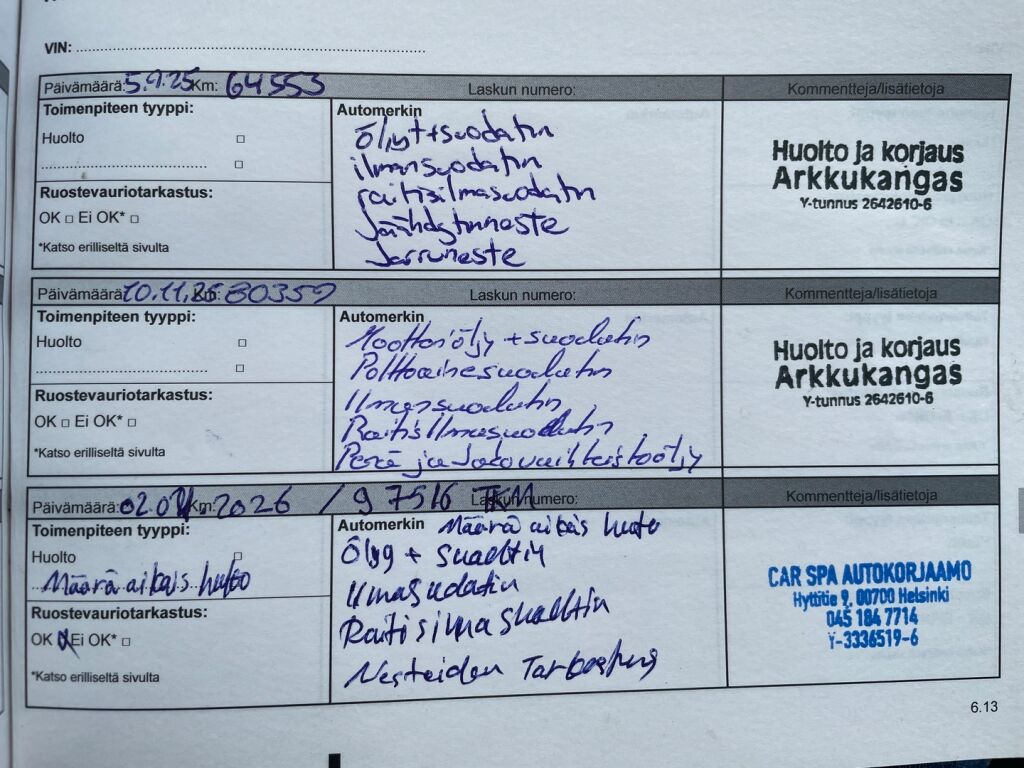 VIN:
Päivämäärä: 5.9.25 Km: 64553 Laskun numero: Kommentteja/lisätietoja
Toimenpiteen tyyppi:
Huolto
Ruostevauriotarkastus:
OK □ Ei OK* □
*Katso erilliseltä sivulta
Automerkin
Öljyt+suodatin
ilmansuodatin
raitisilmasuodatin
Jäähdytinneste
Jarruneste
Huolto ja korjaus
Arkkukangas
Y-tunnus 2642610-6
Päivämäärä: 10.11.25 Km: 80359 Laskun numero: Kommentteja/lisätietoja
Toimenpiteen tyyppi:
Huolto
Ruostevauriotarkastus:
OK □ Ei OK* □
*Katso erilliseltä sivulta
Automerkin
Moottoriöljy + suodatin
Polttoainesuodatin
Ilmansuodatin
Raitisilmasuodatin
Perä ja Jakovaihteistoöljy
Huolto ja korjaus
Arkkukangas
Y-tunnus 2642610-6
Päivämäärä: Km: 2026 / 97516 TKM Laskun numero: Kommentteja/lisätietoja
Toimenpiteen tyyppi:
Huolto
Määrä aikais huto
Ruostevauriotarkastus:
OK Ei OK* □
*Katso erilliseltä sivulta
Automerkin Määrä aikais huto
Öljy + suadtin
Ilmasudatin
Raitisilma suadtin
Nesteiden
CAR SPA AUTOKORJAAMO
Hyttitie 9, 00700 Helsinki
045 184 7714
Y-3336519-6
6.13